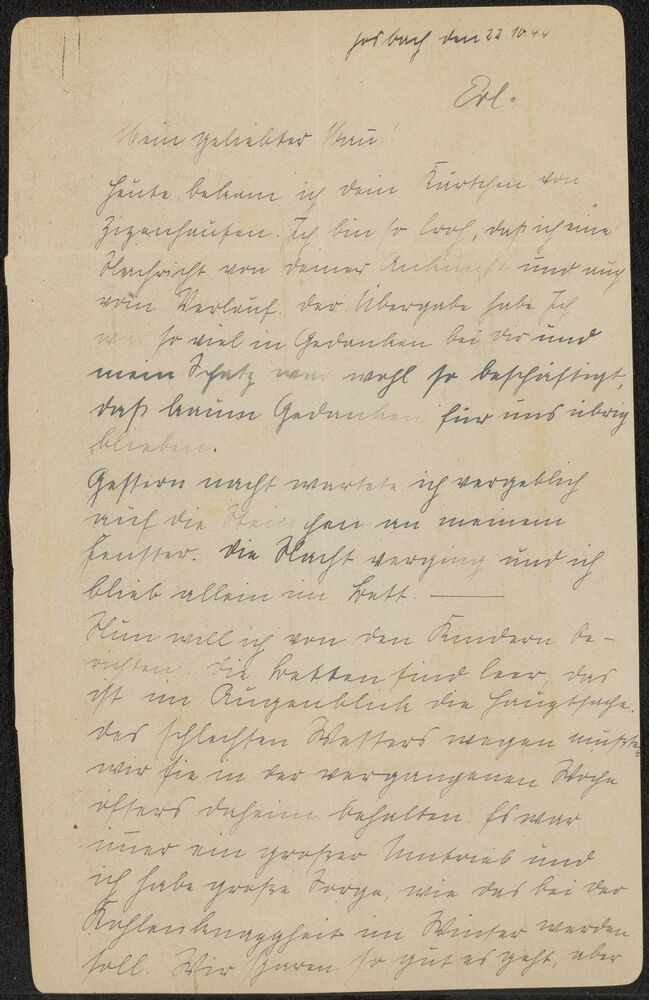 Josbach, den 22.10.44
Erl.
Mein geliebter Mann!
Heute bekam ich Dein Kärtchen von
Zizenhausen. Ich bin so froh, daß ich eine
Nachricht von Deiner Ankunft und auch
vom Verlauf der Übergabe habe. Ich
war so viel in Gedanken bei Dir und
mein Schatz war wohl so beschäftigt,
daß kaum Gedanken für uns übrig
blieben.
Gestern nacht wartete ich vergeblich
auf die Steinchen an meinem
Fenster. Die Nacht verging und ich
blieb allein im Bett. —
Nun will ich von den Kindern be-
richten. Die Betten sind leer, das
ist im Augenblick die Hauptsache.
Des schlechten Wetters wegen mußten
wir sie in der vergangenen Woche
öfters daheim behalten. Es war
immer ein großer Umtrieb und
ich habe große Sorge, wie das bei der
Kohlenknappheit im Winter werden
soll. Wir sparen so gut es geht, aber